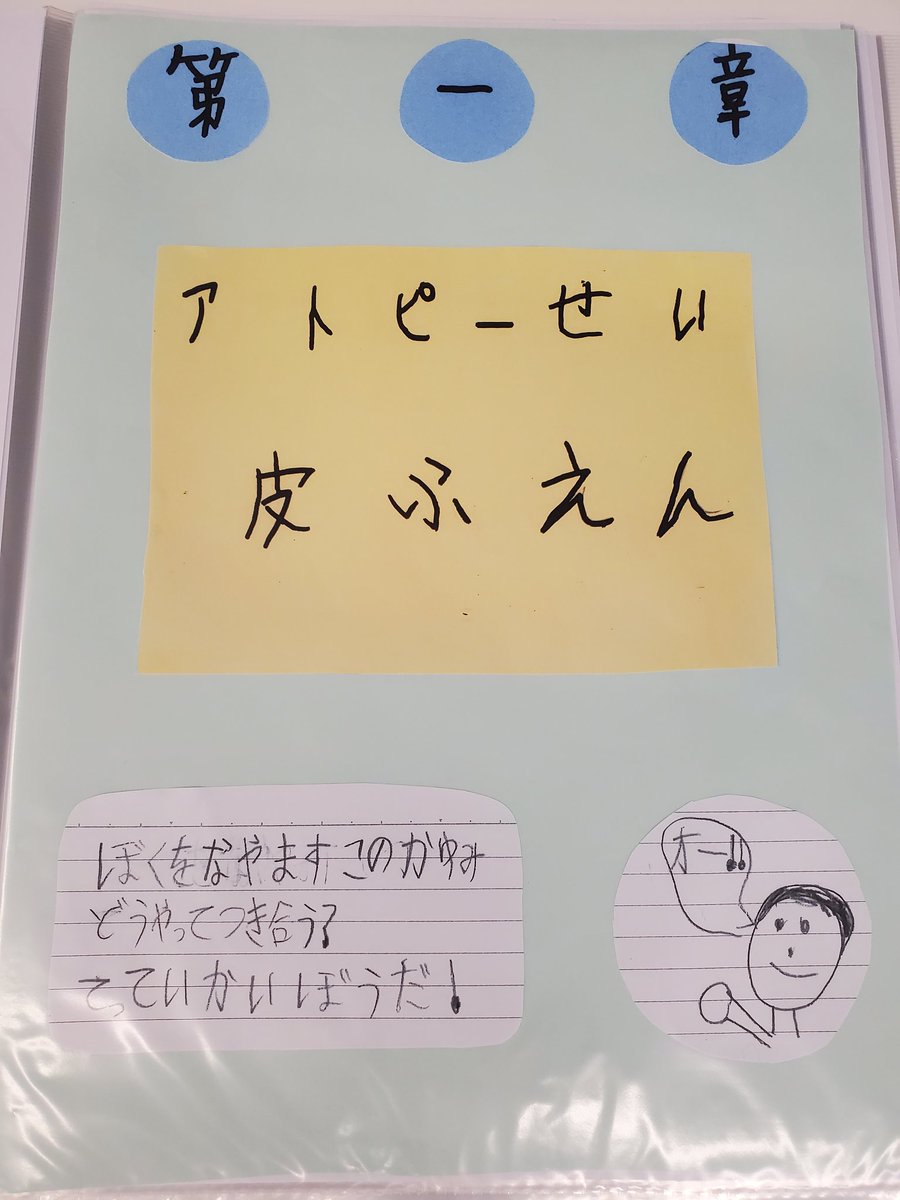 第一章
アトピーせい
皮ふえん
ぼくをなやますこのかゆみ
どうやってつき合う?
てっていかいぼうだ!
オー!!